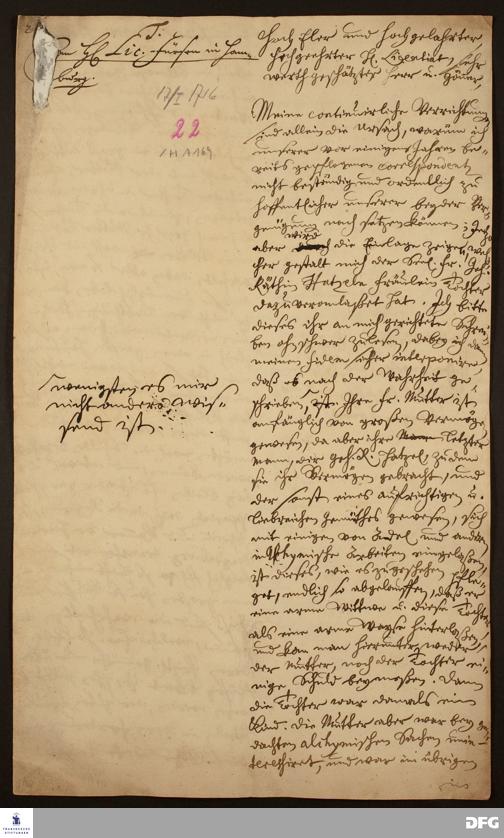 T.
An H. Lic. Fürsen in Ham-
burg.
17/I 1716
22
/ H A 169
Hoch Edler und Hochgelahrter
Hochgeehrter H. Licentiat, sehr
werth geschätzter Herr u. Gönner,
Meine continuirliche Verrichtung
sind allein die Ursach, warum ich
unserer vor einigen Jahren be-
reits gepflogenen correspondentz
nicht beständig und ordentlich zu
hoffentlicher unserer beyder Ver-
gnügung nach setzen können;
aber wird die Einlage zeigen, wel-
cher gestalt mich der Seel. Fr. Geh.
Räthin Hatzeln Fräulein Tochter
dazu veranlasset hat. Ich bitte
dieses ihr an mich gerichtete Schrei-
ben ohnschwer zulesen, dabey ich dan
meinen fidem interponire,
daß es nach der Wahrheit ge-
schrieben, Ihre Fr. Mutter ist
anfänglich von großen Vermögen
gewesen, da aber ihr letzter
Mann, der Geh. R. Hatzel, zu dem
sie ihr Vermögen gebracht, und
der sonst eines aufrichtigen u.
liebreichen Gemüthes gewesen, sich
mit einigen von Adel und andern
in Alchymische Arbeiten eingelaßen,
ist dieses, wie es zugeschehen pfle-
get, endlich so abgelauffen, daß er
eine arme Wittwe u. diese Tochter
als eine arme Wayse hinterlaßen,
und kan man hierunter weder
der Mutter, noch der Tochter ei-
nige Schuld beymeßen. Dann
die Tochter war damals ein
Kind. Die Mutter aber war bey ge-
dachten alchymischen Sachen unin-
teressiret, und war im übrigen
wenigstens es mir
nicht anders wis-
send ist.
DFG